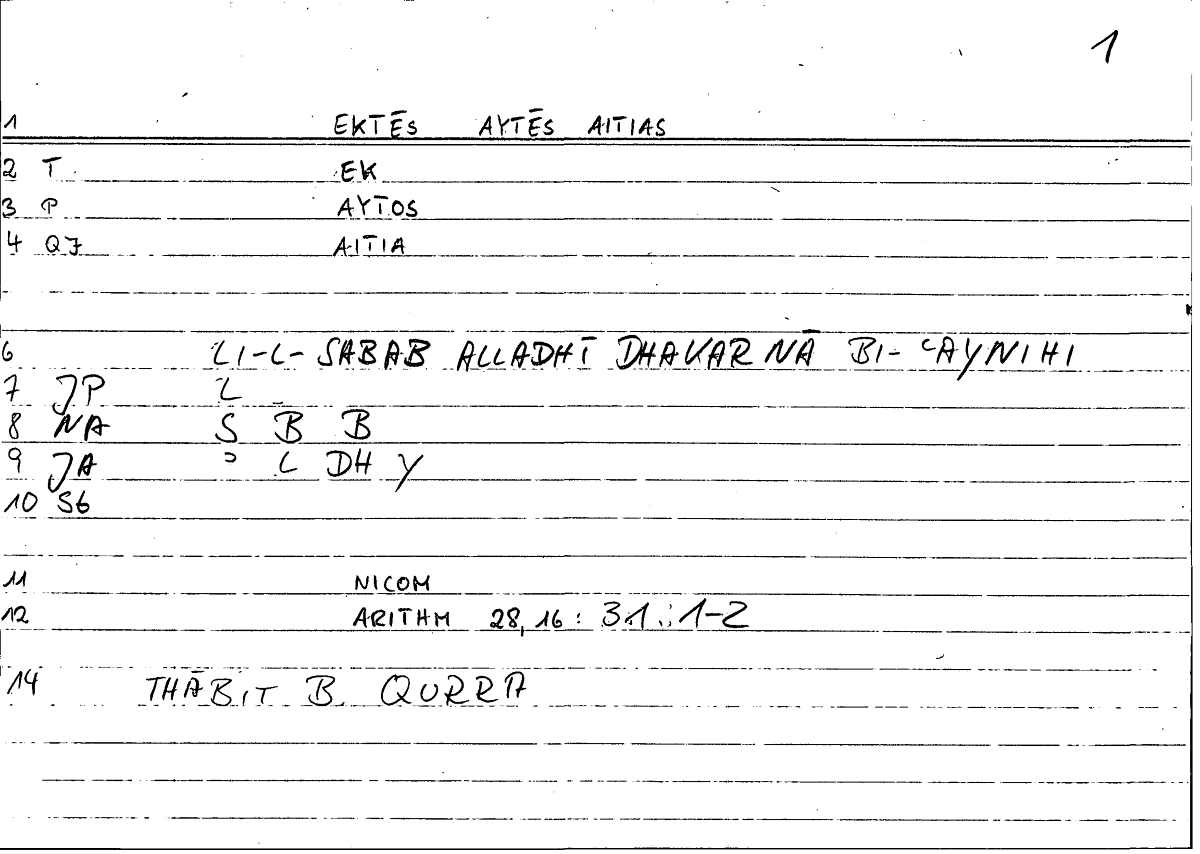 1
1 EKTĒS AYTĒS AITIAS
2 T EK
3 P AYTOS
4 QJ AITIA
6 LI-L-SABAB ALLADHĪ DHAKARNĀ BI-ʿAYNIHI
7 JP L
8 NA S B B
9 JA ʾ L DH Y
10 S6
11 NICOM
12 ARITHM 28,16 : 31.:1-2
14 THĀBIT B. QURRA